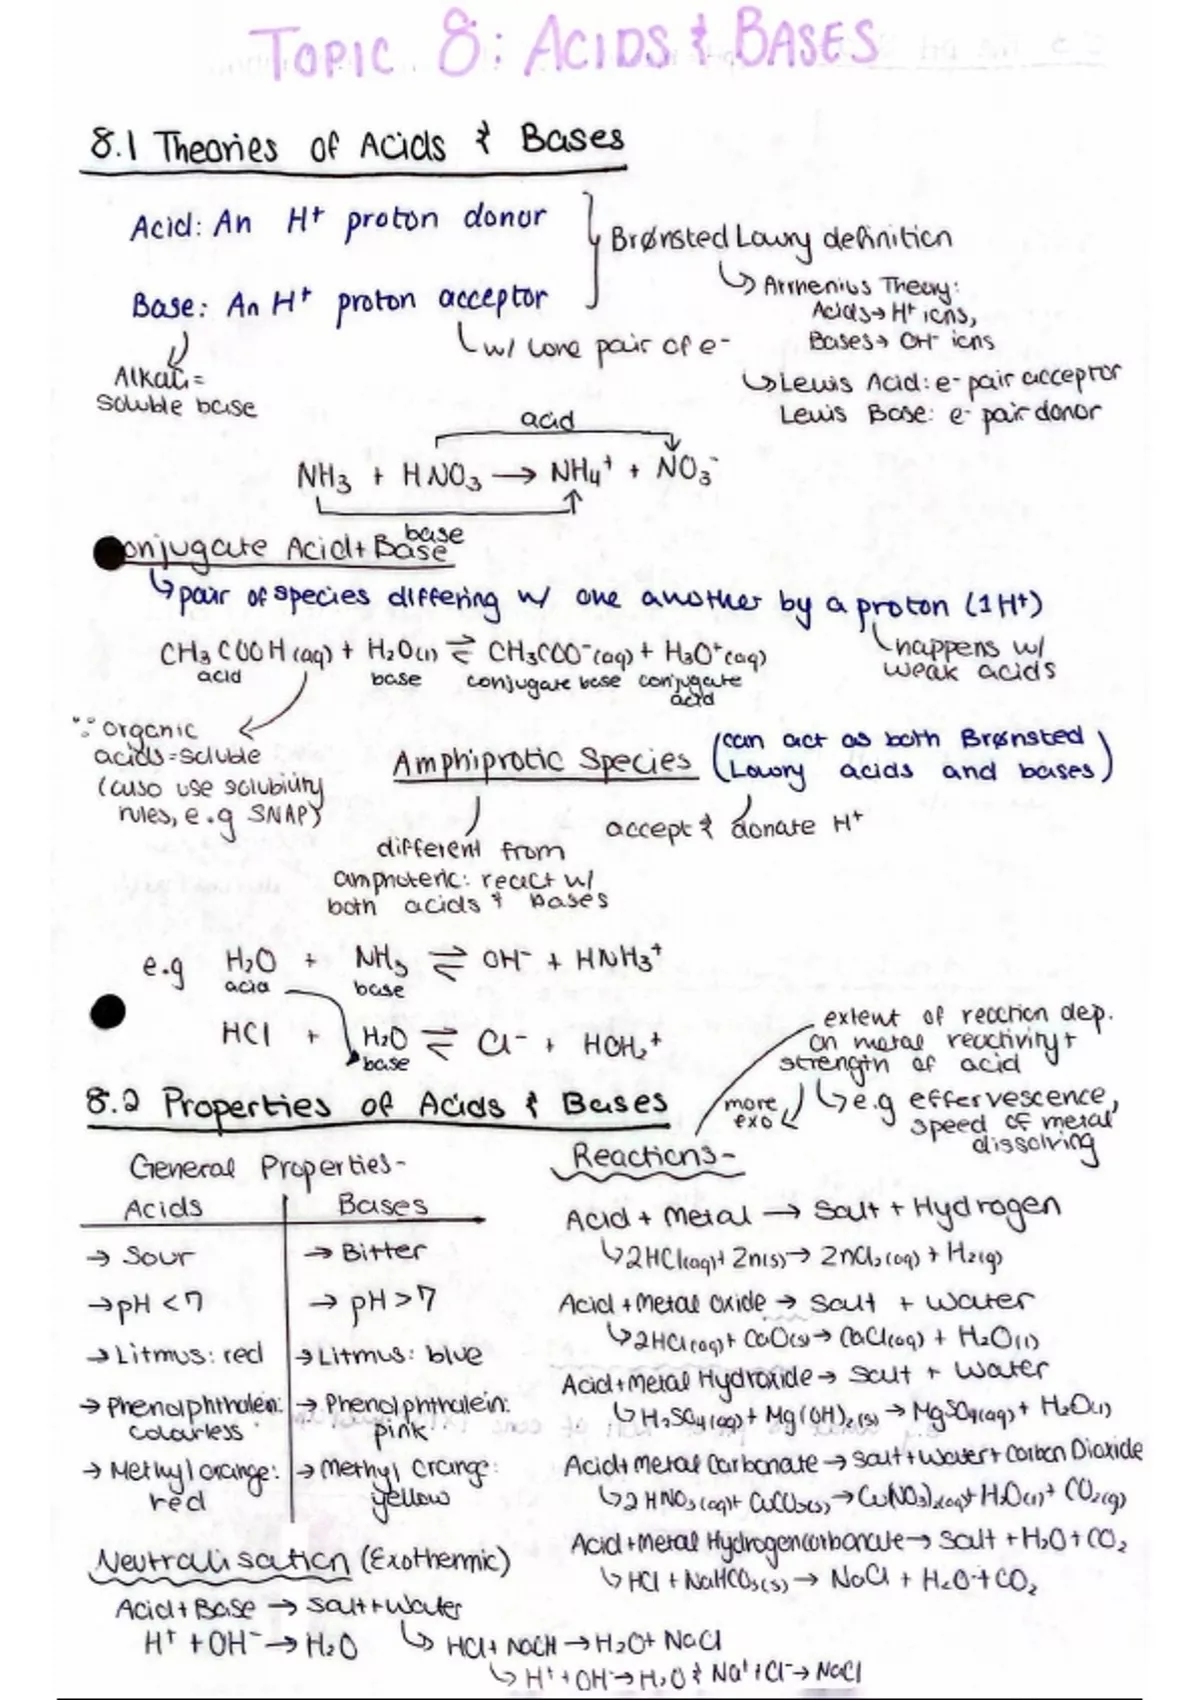 TOPIC 8: ACIDS & BASES
8.1 Theories of Acids & Bases
Acid: An H⁺ proton donor
Base: An H⁺ proton acceptor
Brønsted Lowry definition
↳ Arrhenius Theory:
Acids→ H⁺ ions,
Bases→ OH⁻ ions
↳ w/ lone pair of e-
↳ Lewis Acid: e- pair acceptor
Lewis Base: e- pair donor
Alkali =
soluble base
acid
NH₃ + HNO₃ → NH₄⁺ + NO₃⁻
base
Conjugate Acid + Base
↳ pair of species differing w/ one another by a proton (1H⁺)
happens w/
weak acids
CH₃COOH(aq) + H₂O(l) ⇌ CH₃COO⁻(aq) + H₃O⁺(aq)
acid base conjugate base conjugate
acid
∵ organic
acids = soluble
(also use solubility
rules, e.g SNAP)
Amphiprotic Species (can act as both Brønsted
Lowry acids and bases)
accept & donate H⁺
different from
amphoteric: react w/
both acids & bases
e.g H₂O + NH₃ ⇌ OH⁻ + HNH₃⁺
acid base
HCl + H₂O ⇌ Cl⁻ + HOH₂⁺
base
extent of reaction dep.
on metal reactivity +
strength of acid
↳ e.g effervescence,
speed of metal
dissolving
more
exo
8.2 Properties of Acids & Bases
General Properties-
Acids Bases
→ Sour → Bitter
→ pH < 7 → pH > 7
→ Litmus: red → Litmus: blue
→ Phenolphthalein: → Phenolphthalein:
colourless pink
→ Methyl orange: → Methyl orange:
red yellow
Reactions-
Acid + Metal → Salt + Hydrogen
↳ 2HCl(aq) + Zn(s) → ZnCl₂(aq) + H₂(g)
Acid + Metal Oxide → Salt + Water
↳ 2HCl(aq) + CaO(s) → CaCl(aq) + H₂O(l)
Acid + Metal Hydroxide → Salt + Water
↳ H₂SO₄(aq) + Mg(OH)₂(s) → MgSO₄(aq) + H₂O(l)
Acid + Metal Carbonate → Salt + Water + Carbon Dioxide
↳ 2HNO₃(aq) + CuCO₃(s) → Cu(NO₃)₂(aq) + H₂O(l) + CO₂(g)
Acid + Metal Hydrogencarbonate → Salt + H₂O + CO₂
↳ HCl + NaHCO₃(s) → NaCl + H₂O + CO₂
Neutralisation (Exothermic)
Acid + Base → Salt + Water
H⁺ + OH⁻ → H₂O ↳ HCl + NaOH → H₂O + NaCl
↳ H⁺ + OH⁻ → H₂O & Na⁺ + Cl⁻ → NaCl